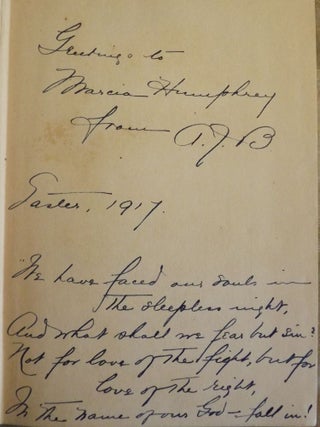 Greetings to
Marcia Humphrey
from A.J.B
Easter, 1917.
"We have faced our souls in
the sleepless night,
And what shall we fear but sin?
Not for love of the fight, but for
love of the right,
In the name of our God – fall in!